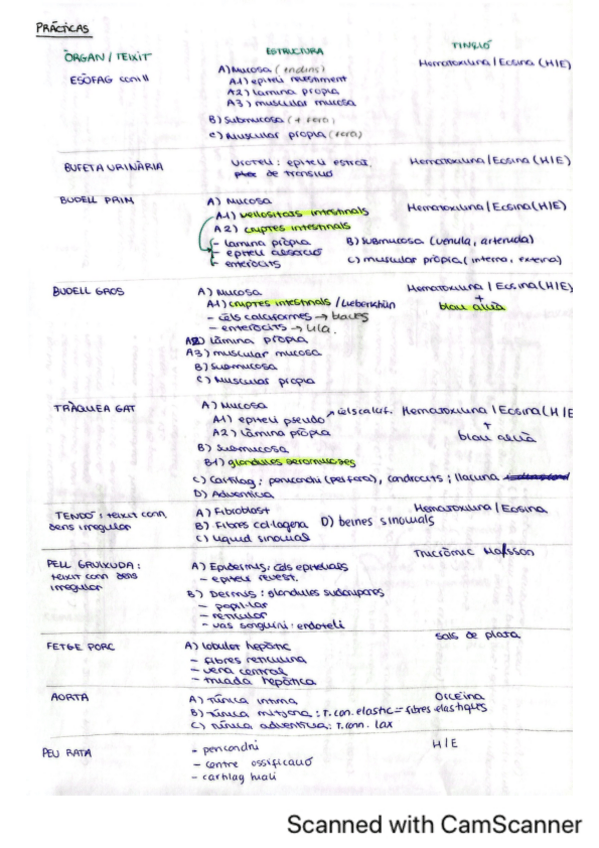 PRÀCTICAS
ÒRGAN / TEIXIT ESTRUCTURA TINCIÓ
ESÒFAG conill A) Mucosa (endins) Hematoxilina / Eosina (H/E)
A1) epiteli revestiment
A2) lamina propia
A3) muscular mucosa
B) Submucosa (+ fora)
C) Muscular propia (fora)
BUFETA URINÀRIA Uroteli: epiteli estrat. Hematoxilina / Eosina (H/E)
de transició
BUDELL PRIM A) Mucosa Hematoxilina / Eosina (H/E)
A1) vellositats intestinals
A2) criptes intestinals
- lamina pròpia B) Submucosa (venula, arteriola)
- epiteli absorció C) muscular pròpia (interna, externa)
- enteròcits
BUDELL GROS A) Mucosa Hematoxilina / Eosina (H/E)
A1) criptes intestinals / Lieberkhün + blau alcià
- cèls calciformes → blaves
- enteròcits → lila.
A2) làmina pròpia
A3) muscular mucosa
B) Submucosa
C) Muscular propia
TRÀQUEA GAT A) Mucosa Hematoxilina / Eosina (H/E
A1) epiteli pseudo → cèls calcif. +
A2) làmina pròpia blau alcià
B) Submucosa
B1) glandules seromucoses
C) Cartílag: pericondri (per fora), condrocits; llacuna
D) Adventicia
TENDÓ: teixit conn. A) Fibroblast Hematoxilina / Eosina
dens irregular B) Fibres col·lagena D) beines sinovials
C) liquid sinovial
PELL GRUIXUDA: A) Epidermis: cèls epitelials Tricròmic Masson
teixit conn dens - epiteli revest.
irregular B) Dermis: glandules sudorípares
- papil·lar
- reticular
- vas sanguini: endoteli
FETGE PORC A) lobulet hepàtic sals de plata
- fibres reticulina
- vena central
- triada hepàtica
AORTA A) Túnica intima Orceina
B) Túnica mitjana: T. con. elastic = fibres elastiques
C) túnica adventicia: T. conn. lax
PEU RATA - pericondri H / E
- centre ossificació
- cartílag hialí
Scanned with CamScanner